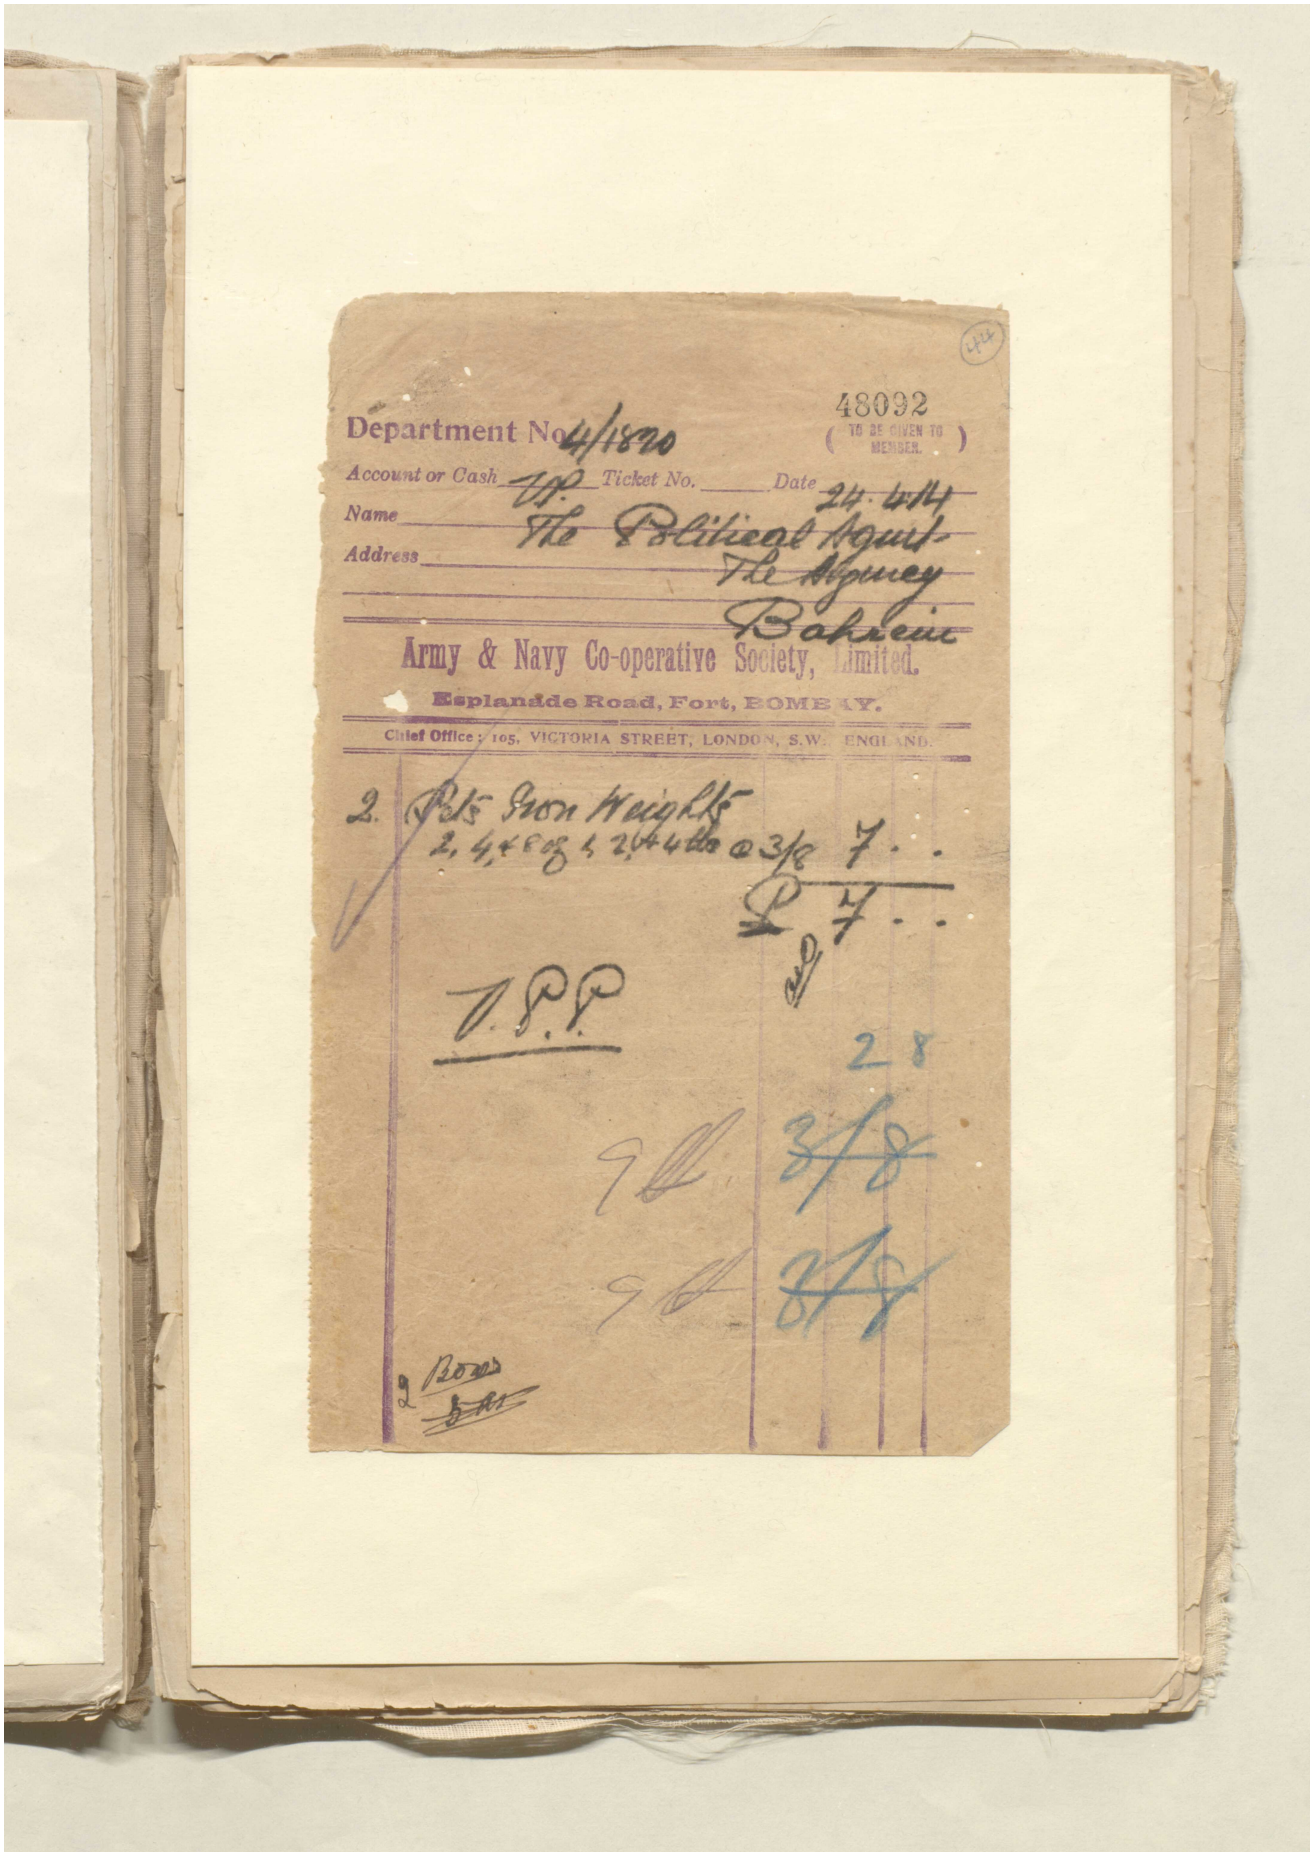 44
48092
Department No 4/1820
( TO BE GIVEN TO MEMBER. )
Account or Cash V.P. Ticket No. Date 24.4.14
Name The Political Agent
Address The Agency
Bahrein
Army & Navy Co-operative Society, Limited.
Esplanade Road, Fort, BOMBAY.
Chief Office: 105, VICTORIA STREET, LONDON, S.W. ENGLAND.
2. Sets Iron Weights
2, 4, & 8 oz 1, 2, & 4 lbs @ 3/8 7 . .
7 . .
V.P.P.
2 8
9 lb. 3/8
9 lb 3/8
2